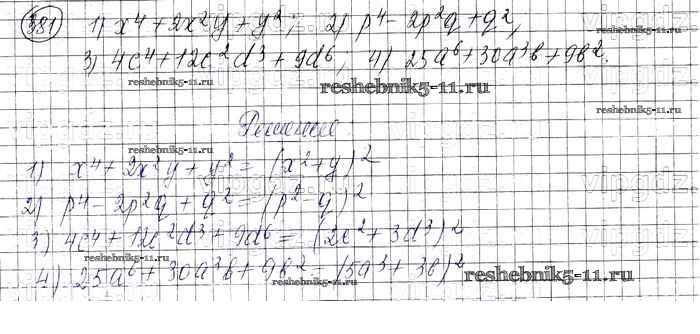 381 1) x⁴ + 2x²y + y²; 2) p⁴ - 2p²q + q²,
3) 4c⁴ + 12c²d³ + 9d⁶; 4) 25a⁶ + 30a³b + 9b².
reshebnik5-11.ru reshebnik5-11.ru
reshebnik5-11.ru
Решение
1) x⁴ + 2x²y + y² = (x² + y)²
2) p⁴ - 2p²q + q² = (p² - q)²
3) 4c⁴ + 12c²d³ + 9d⁶ = (2c² + 3d³)²
4) 25a⁶ + 30a³b + 9b² = (5a³ + 3b)²
reshebnik5-11.ru reshebnik5-11.ru